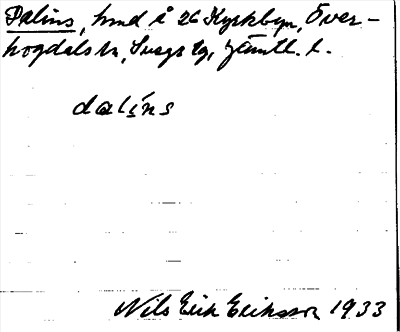 Dalins, hmd i 26 Kyrkbyn, Över-
hogdals sn, Svegs tg, Jämtl. l.
dalíns
Nils Erik Eriksson 1933